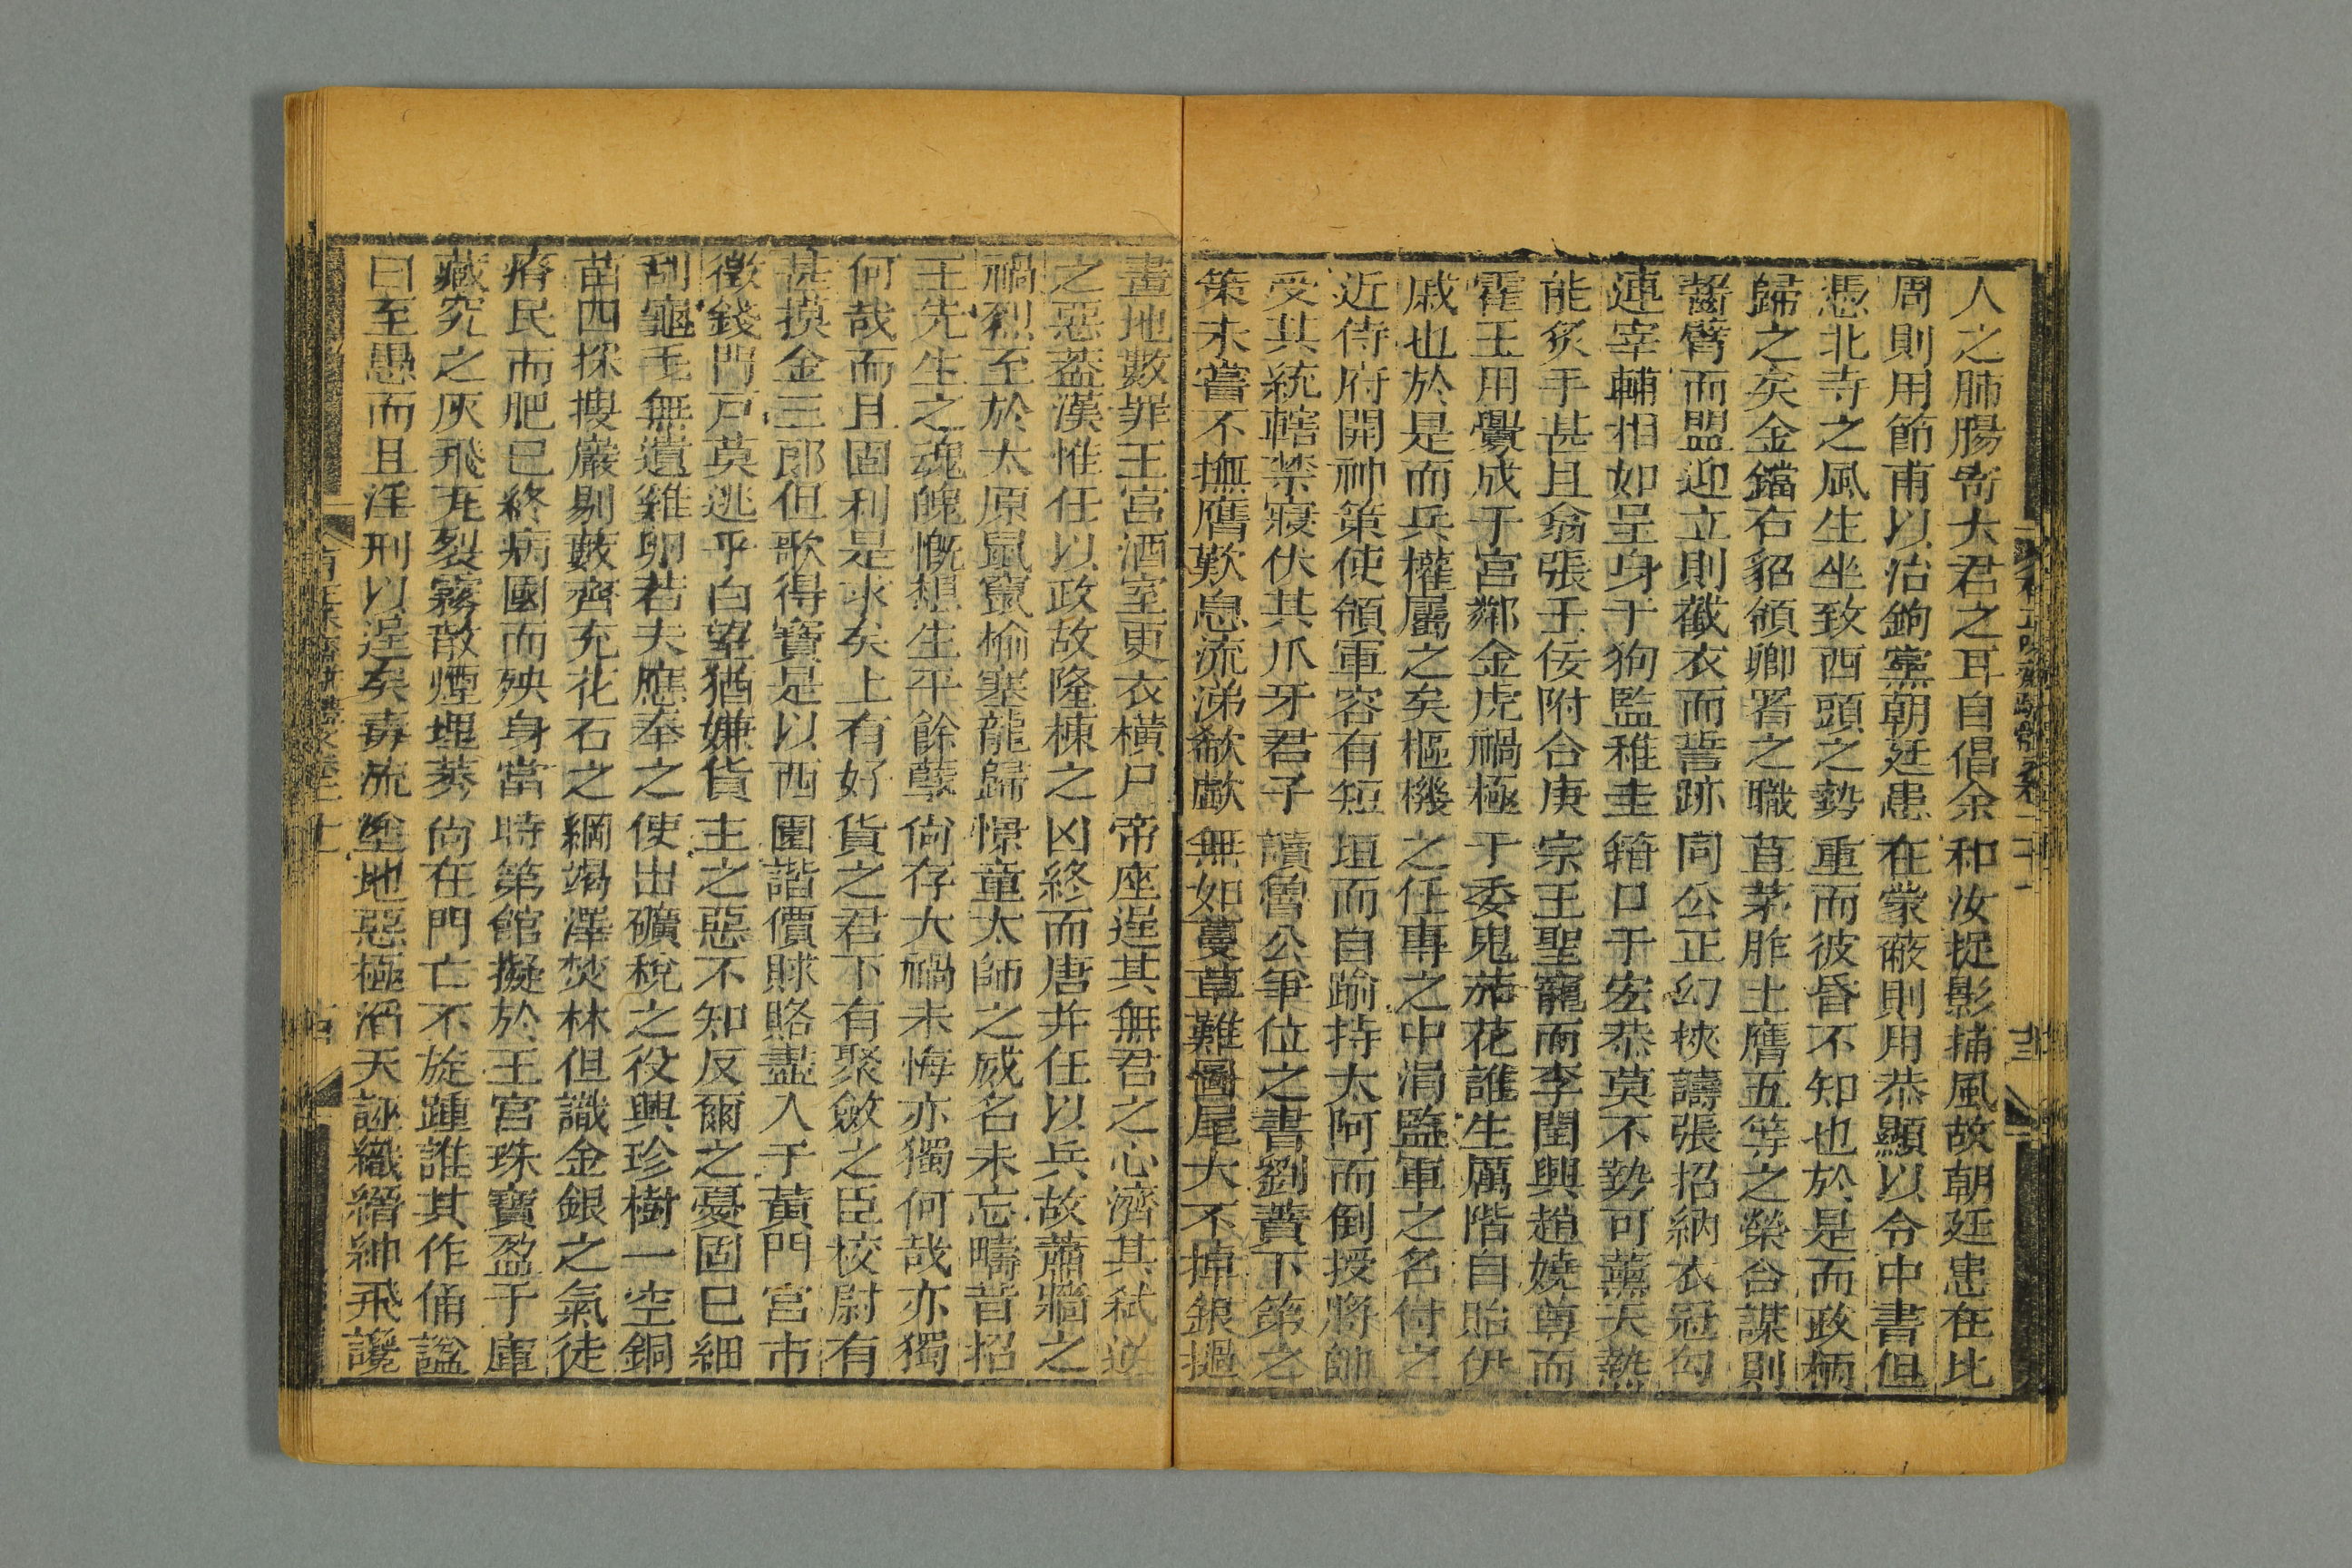 人之肺腸寄大君之耳目倡余和汝捉影捕風故朝廷患在比
周則用節甫以治鉤黨朝廷患在蒙蔽則用恭顯以令中書但
憑北寺之風生坐致西頭之勢重而彼昏不知也於是而政柄
歸之矣金鐺右貂領卿署之職苴茅胙土膺五等之榮合謀則
齧臂而盟迎立則截衣而誓跡同公正幻挾譸張招納衣冠勾
連宰輔相如呈身于狗監稚圭箝口于宏恭莫不勢可薰天熱
能炙手甚且翁張王佞附合庚宗王聖寵而李閏興趙嬈尊而
霍玉用釁成于宮鄰金虎禍極于委鬼茄花誰生厲階自貽伊
戚也於是而兵權屬之矣樞機之任專之中涓監軍之名付之
近侍府開神策使領軍容有短垣而自踰持太阿而倒授將帥
受其統轄禁寢伏其爪牙君子讀魯公爭位之書劉蕡下第之
策未嘗不撫膺歎息流涕欷歔無如蔓草難圖尾大不掉銀撾
畫地數罪王宮酒室更衣橫尸帝座逞其無君之心濟其弒逆
之惡葢漢惟任以政故隆棟之凶終而唐并任以兵故蕭牆之
禍烈至於太原鼠竄榆塞龍歸憬童太師之威名未忘疇昔招
王先生之魂魄慨想生平餘孽尙存大禍未悔亦獨何哉亦獨
何哉而且固利是求矣上有好貨之君下有聚斂之臣校尉有
甚摸金三郎但歌得寶是以西園諧價賕賂盡入于黃門宮市
徵錢門戸莫逃乎白望猶嫌貨主之惡不知反爾之憂固已細
刮龜毛無遺雞卵若夫應奉之使出礦稅之役興珍樹一空銅
苗四探搜巖剔藪齊充花石之綱竭澤焚林但識金銀之氣徒
瘠民而肥已終病國而殃身當時第館擬於王宮珠寶盈于庫
藏究之灰飛瓦裂霧散煙埋莽尙在門亡不旋踵誰其作俑諡
曰至愚而且淫刑以逞矣毒流塗地惡極滔天誣織縉紳飛讒